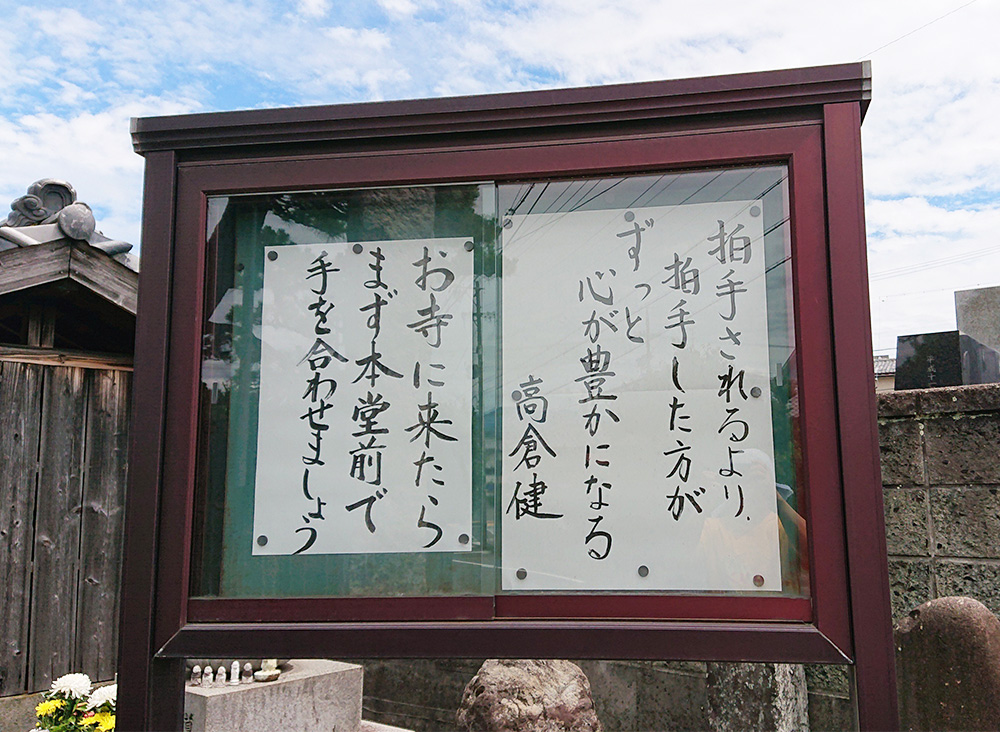 拍手されるより
拍手した方が
ずっと
心が豊かになる
高倉健
お寺に来たら
まず本堂前で
手を合わせましょう